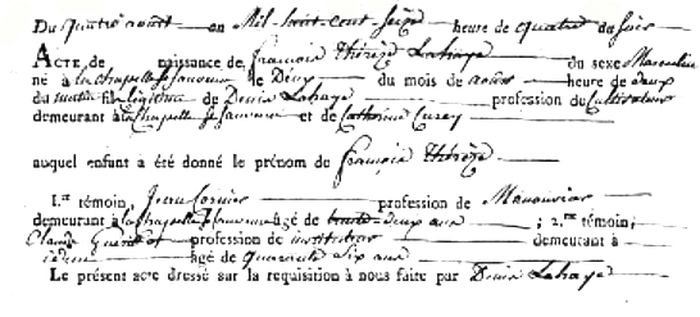 Du quatre aout en Mil-huit-cent-Seize heure de quatre du Soir
ACTE de naissance de François Thérèze Lahaye du sexe Masculin
né à la Chapelle St Sauveur le Deux du mois de aout heure de deux
du matin fils légitime de Denis Lahaye profession du Cultivateur
demeurant à la Chapelle St Sauveur et de Catherine
auquel enfant à été donné le prénom de François Thérèze
1.er témoin, Jean Cornier profession de Manouvrier
demeurant à la Chapelle St Sauveur âgé de trente-deux ans ; 2.me témoin;
Claude profession de instituteur demeurant à
idem âgé de quarante Six ans
Le présent acte dressé sur la requisition à nous faite par Denis Lahaye